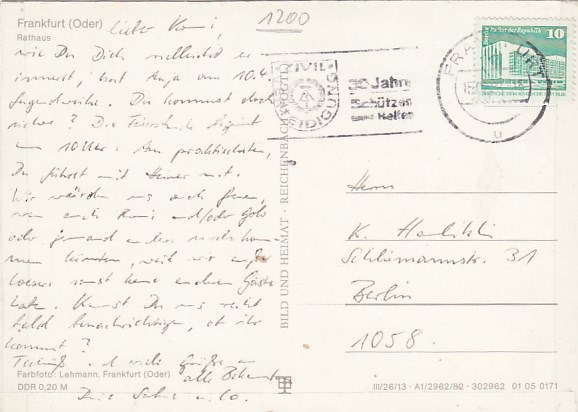 Frankfurt (Oder)
Rathaus
1200
lieber Kani,
wie Du Dich vielleicht er
innerst, hat Anja am 10.4.
Jugendweihe. Du kommst doch
sicher? Die Feierstunde beginnt
um 10 Uhr. Am praktischsten,
Du fährst mit Heiner mit.
Wir würden uns auch freuen,
wenn auch Kani und/oder
oder jemand anders noch kom-
men könnten, weil wir außer
sonst keine anderen Gäste
haben. Kannst Du uns recht
bald benachrichtigen, ob ihr
kommt?
Tschüß und viele Grüße an
alle Bekannten
Farbfoto: Lehmann, Frankfurt (Oder)
DDR 0,20 M
BILD UND HEIMAT · REICHENBACH (VOGTL)
ZIVIL
VERTEIDIGUNG
30 Jahre
Schützen
und Helfen
FRANKFURT
u
Berlin, Palast der Republik
10
DEUTSCHE DEMOKRATISCHE REPUBLIK
Herrn
K.
Schliemannstr. 31
Berlin
1058.
III/26/13 · A1/2962/82 · 302962 01 05 0171